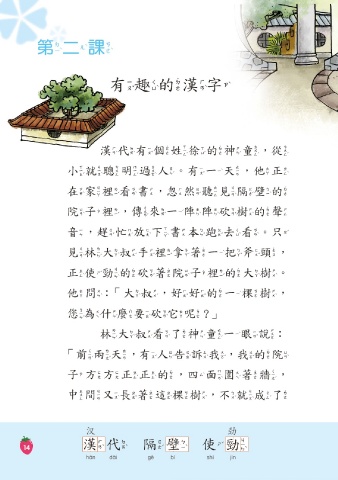 第二課
有趣的漢字
漢代有個姓徐的神童，從
小就聰明過人。有一天，他正
在家裡看書，忽然聽見隔壁的
院子裡，傳來一陣陣砍樹的聲
音，趕忙放下書本跑去看。只
見林大叔手裡拿著一把斧頭，
正使勁的砍著院子裡的大樹。
他問：「大叔，好好的一棵樹，
您為什麼要砍它呢？」
林大叔看了神童一眼說：
「前兩天，有人告訴我，我的院
子方方正正的，四面圍著牆，
中間又長著這棵樹，不就成了
汉 劲
漢代 隔壁 使勁
hàn dài gé bì shǐ jìn
14